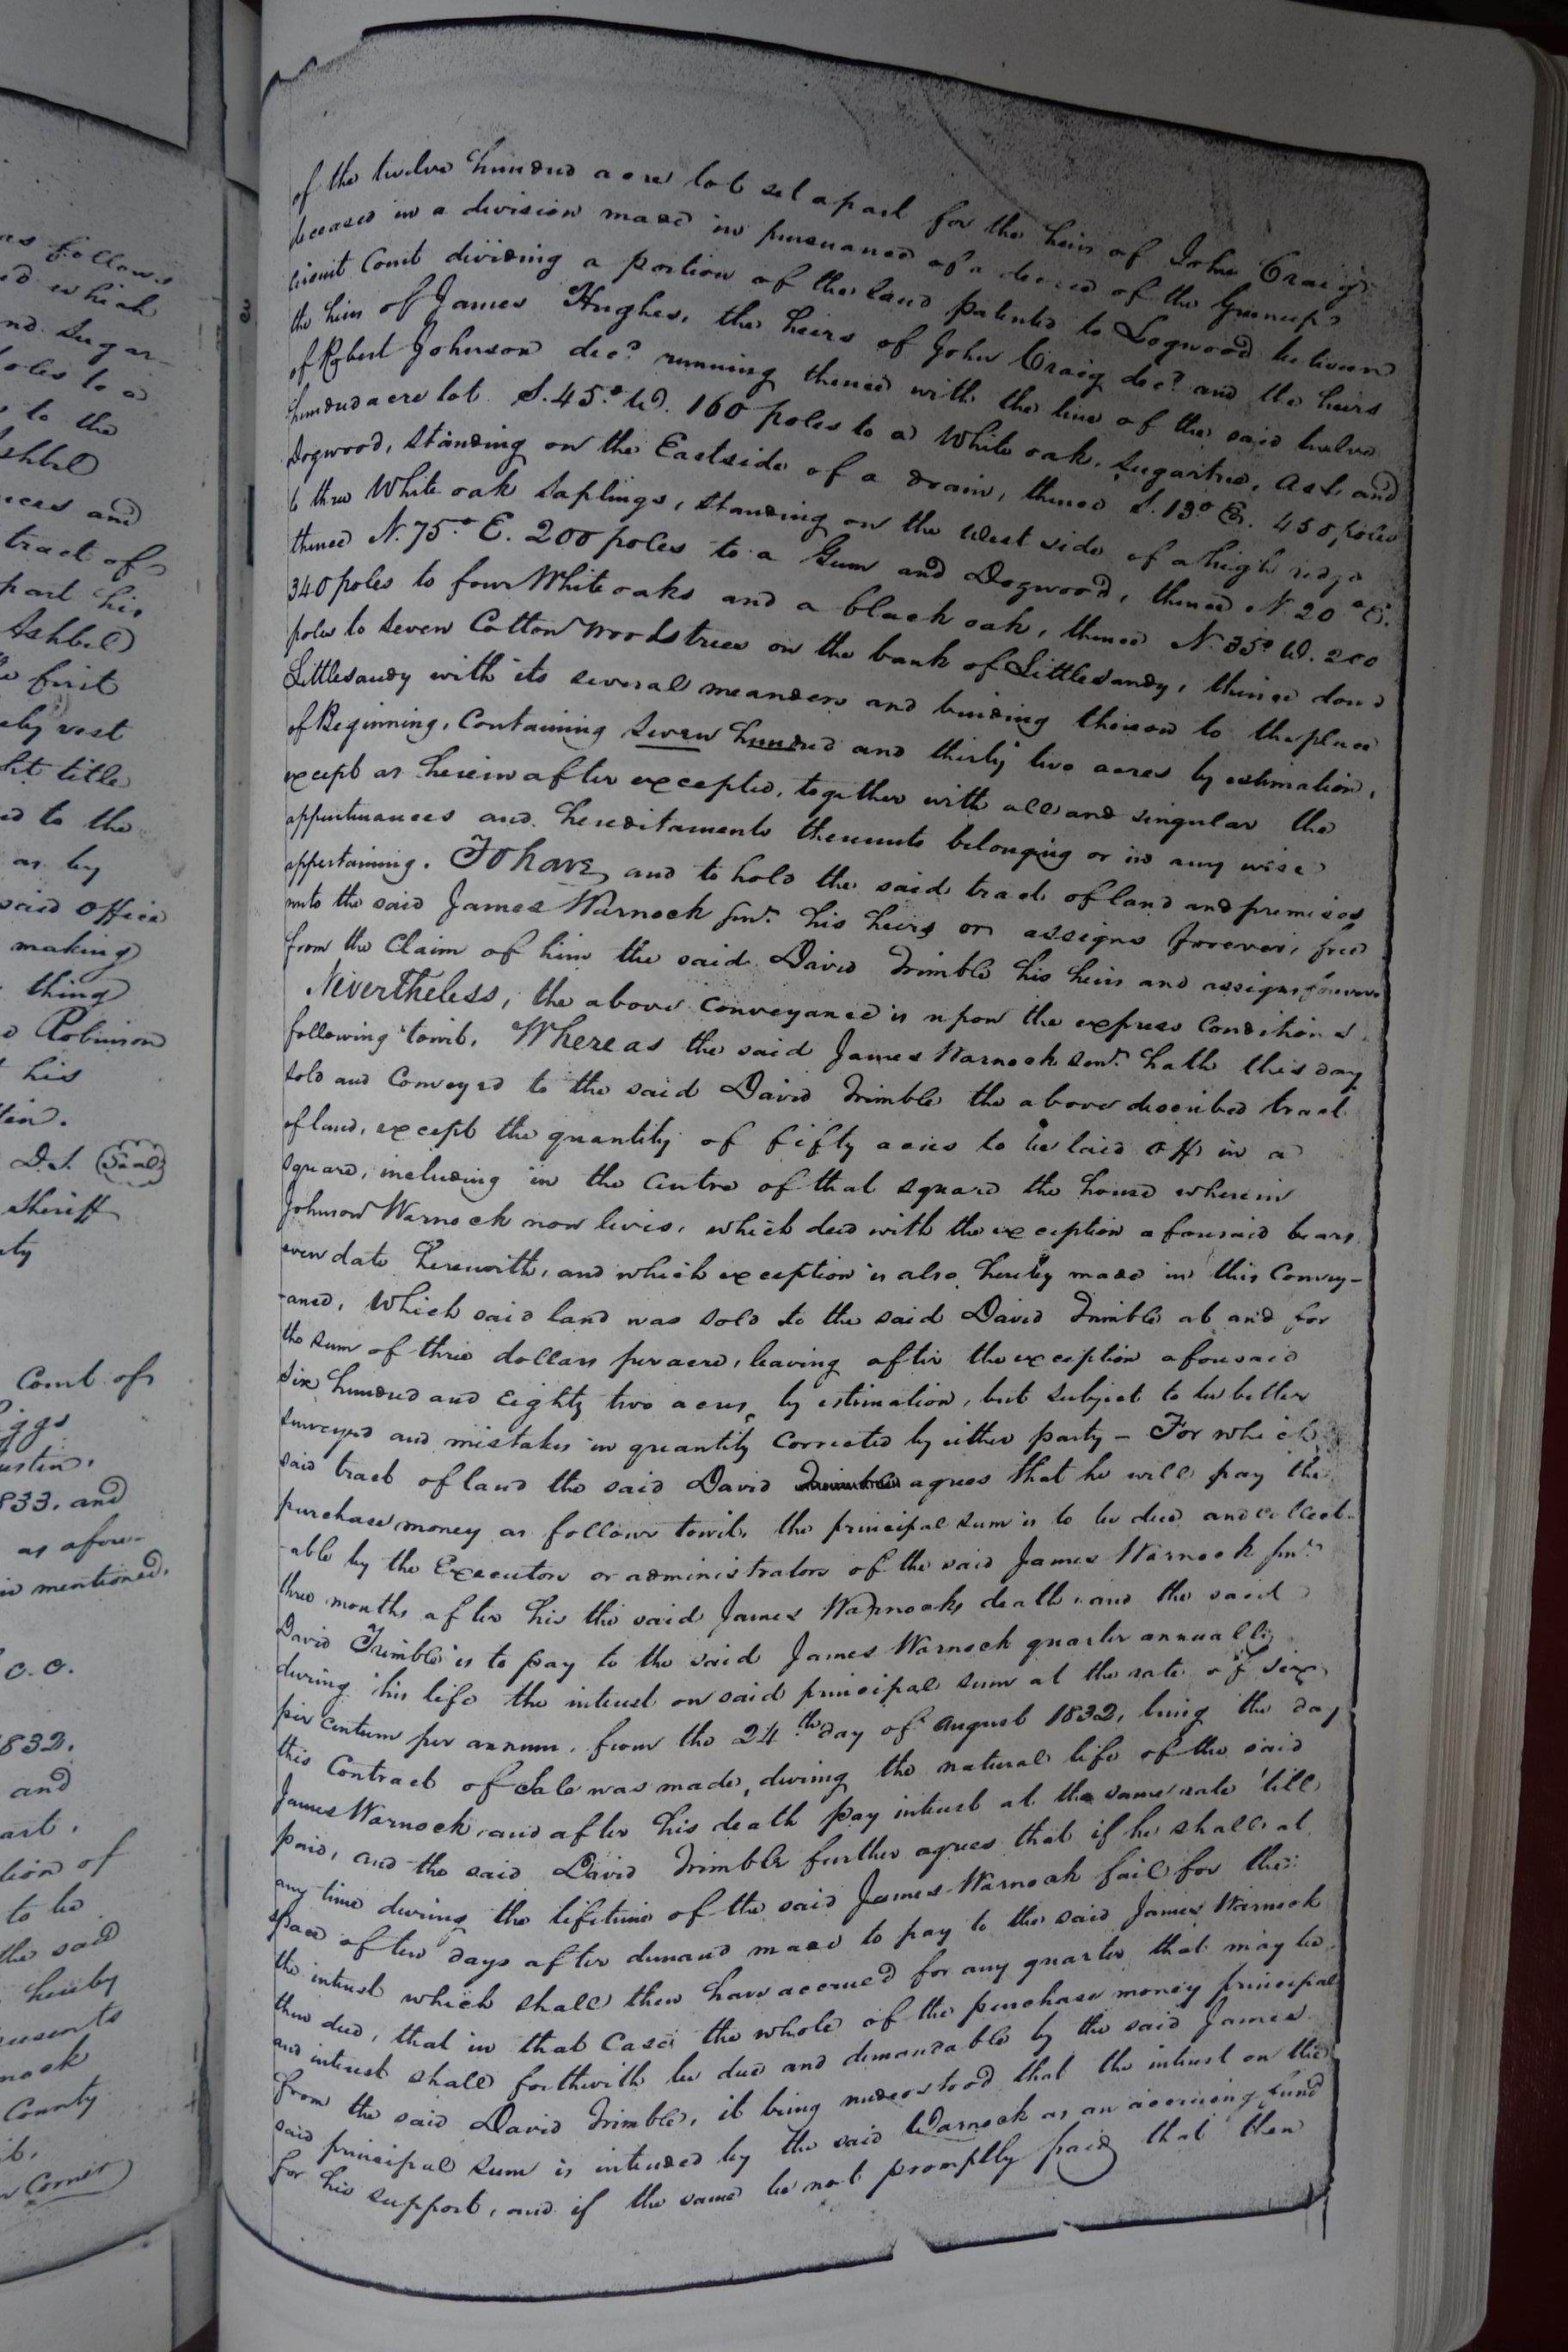 as follows
which
nd Sugar-
oles to a
to the
Ashbel
nces and
tract of
part his
Ashbel
first
eby vest
ht title
d to the
as by
said Office
making
thing
Robinson
his
D.S. (Seal)
Sheriff
Court of
1833. and
as afore-
in mentioned.
C. C.
1832.
and
art.
tion of
to be
the said
hereby
resents
nock
County
Corner
of the twelve hundred acre lot set apart for the heirs of John Craig
deceased in a division made in pursuance of a decree of the Greenup
circuit Court dividing a portion of the land patented to Logwood between
the heirs of James Hughes, the heirs of John Craig decd. and the heirs
of Robert Johnson decd. running thence with the line of the said twelve
hundred acre lot S. 45.° W. 160 poles to a White oak, Sugartree, Ash and
Dogwood, standing on the East side of a drain, thence S. 13° E. 450 poles
to three White oak Saplings, standing on the West side of a high ridge
thence N. 75.° E. 200 poles to a Gum and Dogwood, thence N. 20° E.
340 poles to four White oaks and a black oak, thence N. 35° W. 200
poles to seven Cotton woods trees on the bank of Little Sandy, thence down
Little sandy with its several meanders and binding thereon to the place
of Beginning, Containing Seven hundred and thirty two acres by estimation,
except as herein after excepted, together with all and singular the
appurtenances and hereditaments thereunto belonging or in any wise
appertaining. To have and to hold the said tract of land and premises
unto the said James Warnock Senr. his heirs or assigns forever, free
from the Claim of him the said David Trimble his heirs and assigns forever
Nevertheless, the above conveyance is upon the express Conditions
following towit. Whereas the said James Warnock Senr. hath this day
sold and Conveyed to the said David Trimble the above described tract
of land, except the quantity of fifty acres to be laid off in a
square, including in the Centre of that square the house wherein
Johnson Warnock now lives, which deed with the exception aforesaid bears
even date herewith, and which exception is also hereby made in this Convey-
-ance, Which said land was sold to the said David Trimble at and for
the sum of three dollars per acre, leaving after the exception aforesaid
Six hundred and Eighty two acres, by estimation, but subject to be better
surveyed and mistakes in quantity Corrected by either party – For which
said tract of land the said David Trimble agrees that he will pay the
purchase money as follows towit, the principal sum is to be due and collect-
-able by the Executors or administrators of the said James Warnock Senr.
three months after his the said James Warnocks death, and the said
David Trimble is to pay to the said James Warnock quarter annually
during his life the interest on said principal sum at the rate of six
per centum per annum, from the 24th. day of August 1832, being the day
this Contract of Sale was made, during the natural life of the said
James Warnock and after his death pay interest at the same rate 'till
paid, and the said David Trimble further agrees that if he shall at
any time during the lifetime of the said James Warnock fail for the
space of ten days after demand made to pay to the said James Warnock
the interest which shall then have accrued for any quarter that may be
then due, that in that Case the whole of the purchase money principal
and interest shall forthwith be due and demandable by the said James
from the said David Trimble, it being understood that the interest on the
said principal sum is intended by the said Warnock as an accruing fund
for his support, and if the same be not promptly paid that then